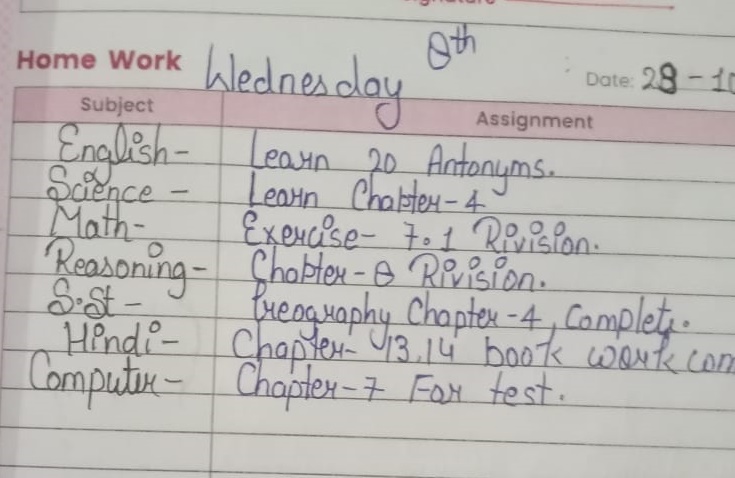 8th
Home Work Wednesday Date: 28-10
Subject Assignment
English- Learn 20 Antonyms.
Science - Learn Chapter-4
Math- Exercise- 7.1 Rivision.
Reasoning- Chapter-8 Rivision.
S.St- Greography Chapter-4, Complete.
Hindi- Chapter- 13,14 book work com
Computer- Chapter-7 For test.